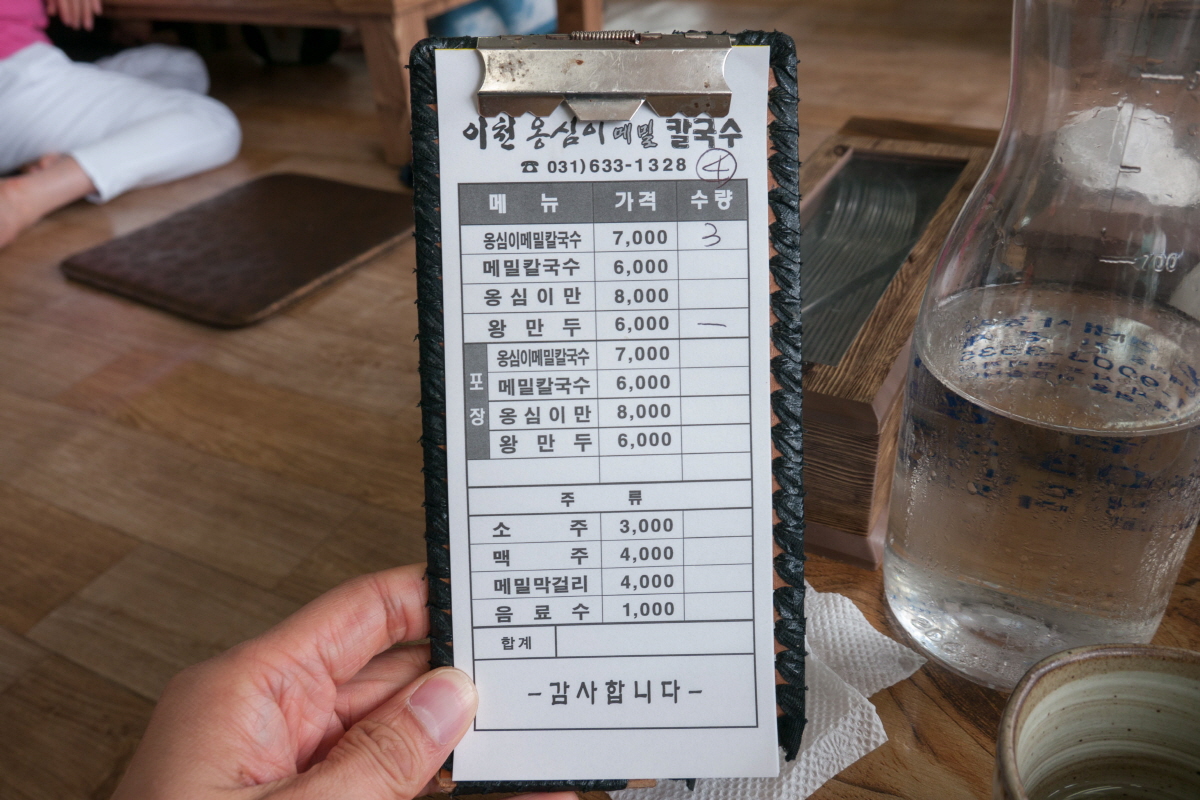 이천 옹심이 메밀 칼국수
☎ 031)633-1328 ④
메 뉴 가격 수량
옹심이메밀칼국수 7,000 3
메밀칼국수 6,000
옹심이만 8,000
왕만두 6,000 一
포장
옹심이메밀칼국수 7,000
메밀칼국수 6,000
옹심이만 8,000
왕만두 6,000
주 류
소 주 3,000
맥 주 4,000
메밀막걸리 4,000
음료수 1,000
합계
-감사합니다-